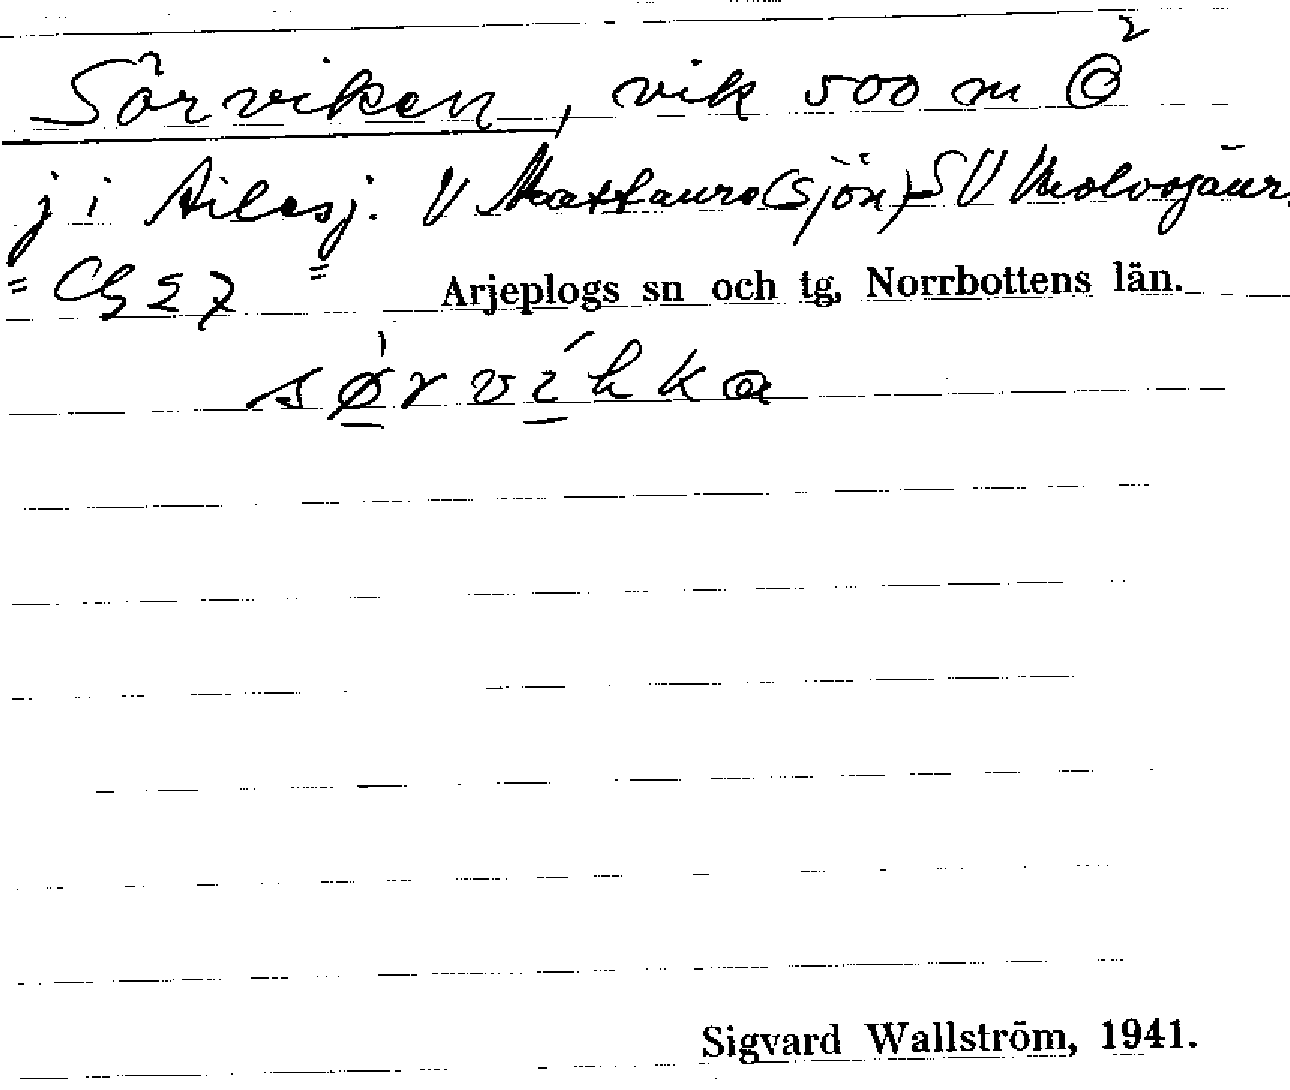 Sörviken, vik 500 m
j i Ailesj. V Mattaure(sjön) SV
= Cg 27 =
Arjeplogs sn och tg, Norrbottens län.
sørvihka
Sigvard Wallström, 1941.